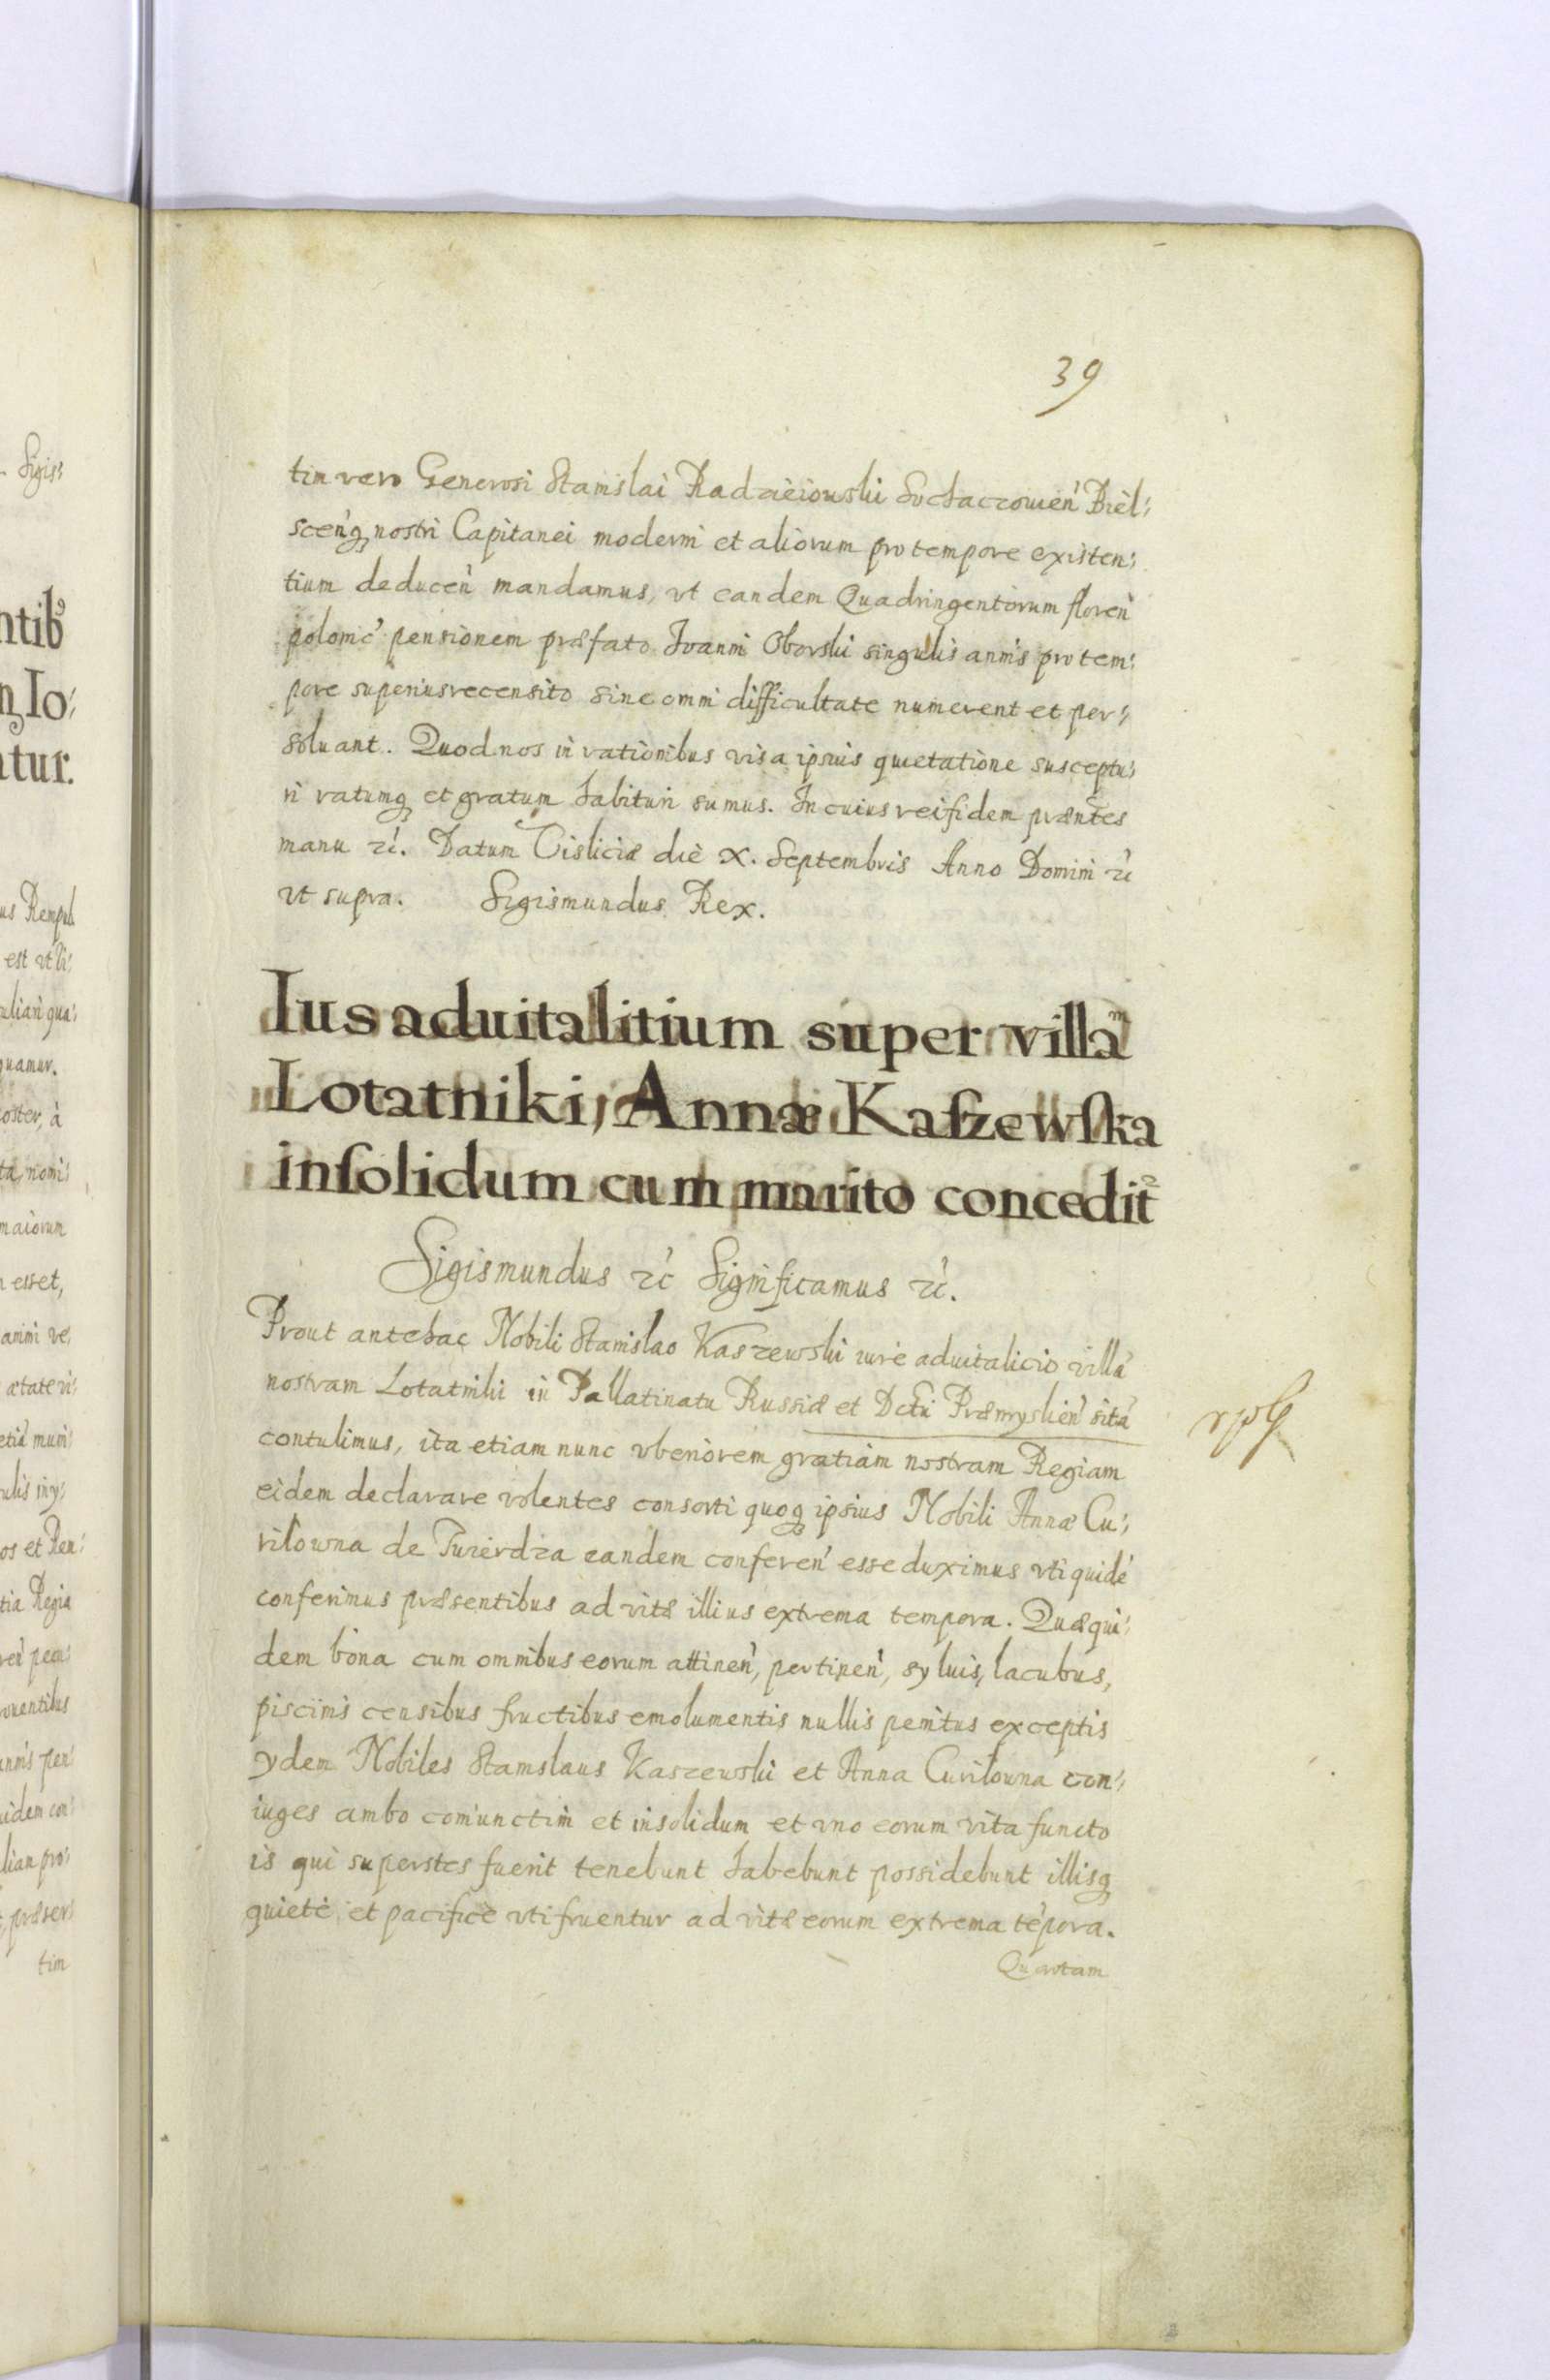 39
tim vero Generosi Stanislai Radzieiowski Sochaczouien̄ Biel⸗
scen̄q nostri Capitanei moderni et aliorum pro tempore existen⸗
tium deducen̄ mandamus, vt eandem Quadringentorum floren̄
polonic̄ pensionem præfato Ioanni Oborski singulis annis pro tem⸗
pore superius recensito sine omni difficultate numerent et per⸗
soluant. Quod nos in rationibus visa ipsius quietatione susceptu⸗
ri ratumq et gratum habituri sumus. In cuius rei fidem præntes
manu ꝛc̄. Datum Vislicið die X. Septembris Anno Domini ꝛc̄
vt supra. Sigismundus Rex.
Ius aduitalitium super villam
Lotatniki, Annæ Kaſzewſka
inſolidum cum marito concedit
Sigismundus ꝛc̄ Significamus ꝛc̄.
Prout antehac Nobili Stanislao Kaszewski iure aduitalicio villā
nostram Lotatniki in Pallatinatu Russiæ et Dctu Præmyslien̄ sitā
contulimus, ita etiam nunc vberiorem gratiam nostram Regiam
eidem declarare volentes consorti quoq ipsius Nobili Annæ Cu⸗
rilowna de Twierdza eandem conferen̄ esse duximus vti quidē
conferimus præsentibus ad vitæ illius extrema tempora. Quæ qui⸗
dem bona cum omnibus eorum attinen̄, pertinen̄, syluis, lacubus,
piscinis censibus fructibus emolumentis nullis penitus exceptis
ydem Nobiles Stanislaus Kaszewski et Anna Curilowna con⸗
iuges ambo coniunctim et insolidum et vno eorum vita functo
is qui superstes fuerit tenebunt habebunt possidebunt illisq
quietè et pacificè vti fruentur ad vitæ eorum extrema tēpora.
Quartam